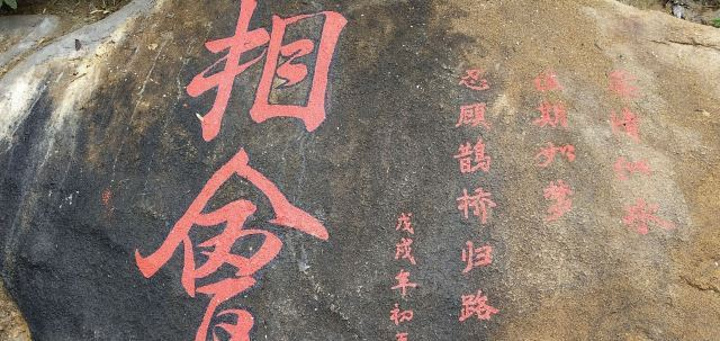 柔情似水
佳期如梦
忍顾鹊桥归路
戊戌年初
相會